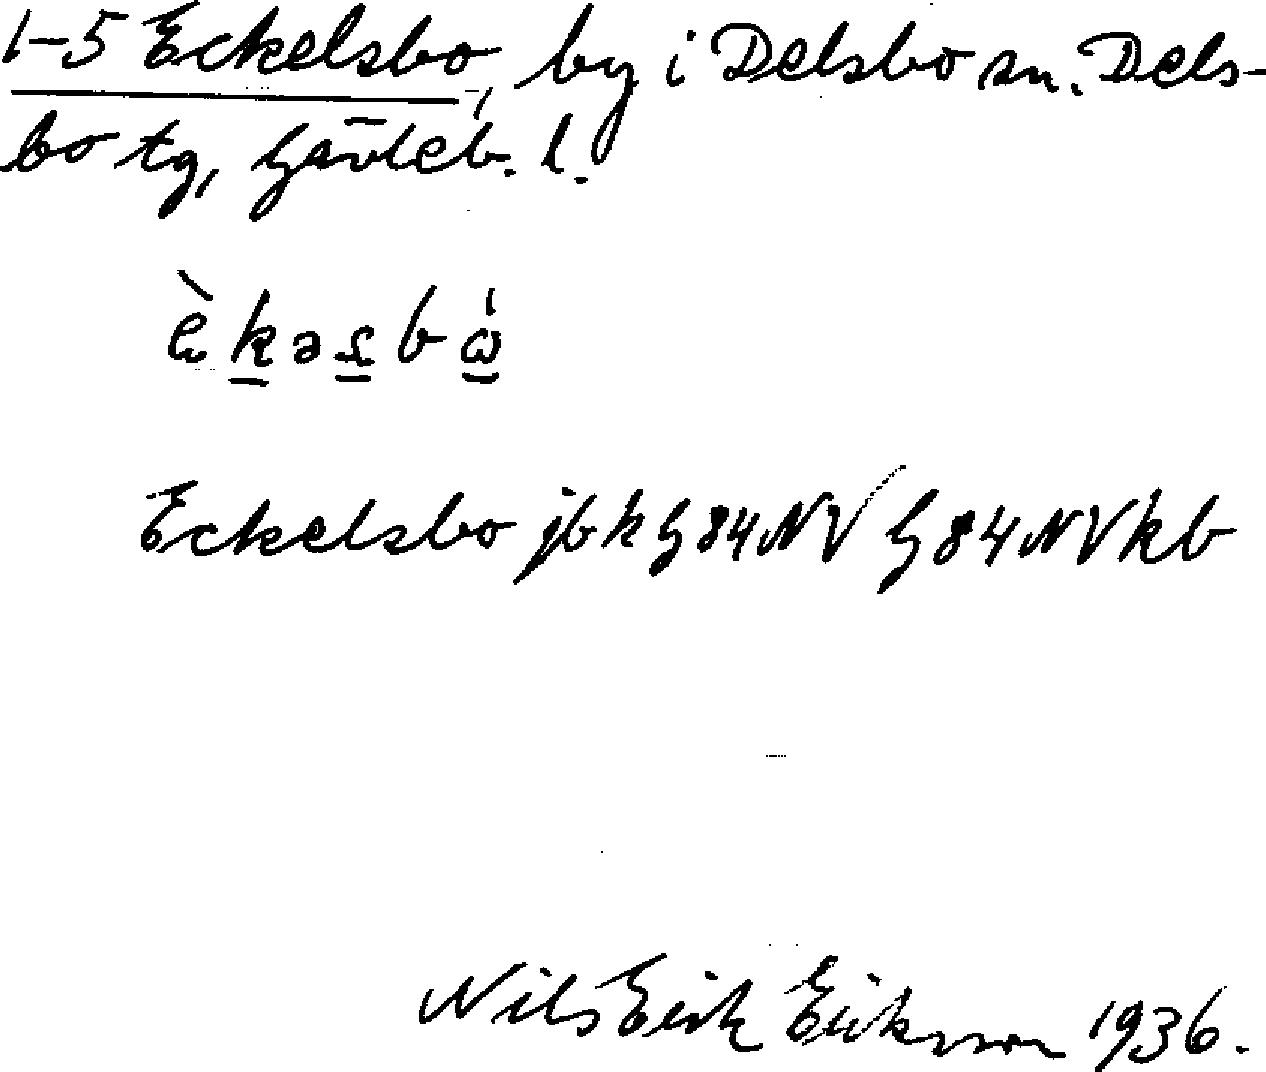 1-5 Eckelsbo, by i Delsbo sn. Dels-
bo tg, Gävleb. l.
Eckelsbo jbk G 84 NV G 84 NV kb
Nils Erik Eriksson 1936.